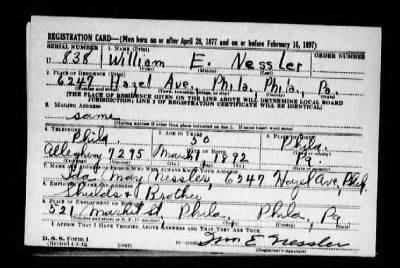 REGISTRATION CARD—(Men born on or after April 28, 1877 and on or before February 16, 1897)
SERIAL NUMBER 1. NAME (Print) ORDER NUMBER
U 838 William E. Nessler
(First) (Middle) (Last)
2. PLACE OF RESIDENCE (Print)
6247 Hazel Ave., Phila. Phila., Pa.
(THE PLACE OF RESIDENCE GIVEN ON THE LINE ABOVE WILL DETERMINE LOCAL BOARD
JURISDICTION; LINE 2 OF REGISTRATION CERTIFICATE WILL BE IDENTICAL)
3. MAILING ADDRESS
same
[Mailing address if other than place indicated on line 2. If same insert word same]
4. TELEPHONE 5. AGE IN YEARS 6. PLACE OF BIRTH
Phila 50 Phila.
Allegheny 7295 1892 Pa
7. NAME AND ADDRESS OF PERSON WHO WILL ALWAYS KNOW YOUR ADDRESS
Ida May Nessler, 6247 Hazel Ave, Phila.
8. EMPLOYER'S NAME AND ADDRESS
Shields + Brother
9. PLACE OF EMPLOYMENT OR BUSINESS
521 Market St, Phila, Phila, Pa.
I AFFIRM THAT I HAVE VERIFIED ABOVE ANSWERS AND THAT THEY ARE TRUE.
D. S. S. Form 1
(Revised 4-1-42) (over) Wm E Nessler